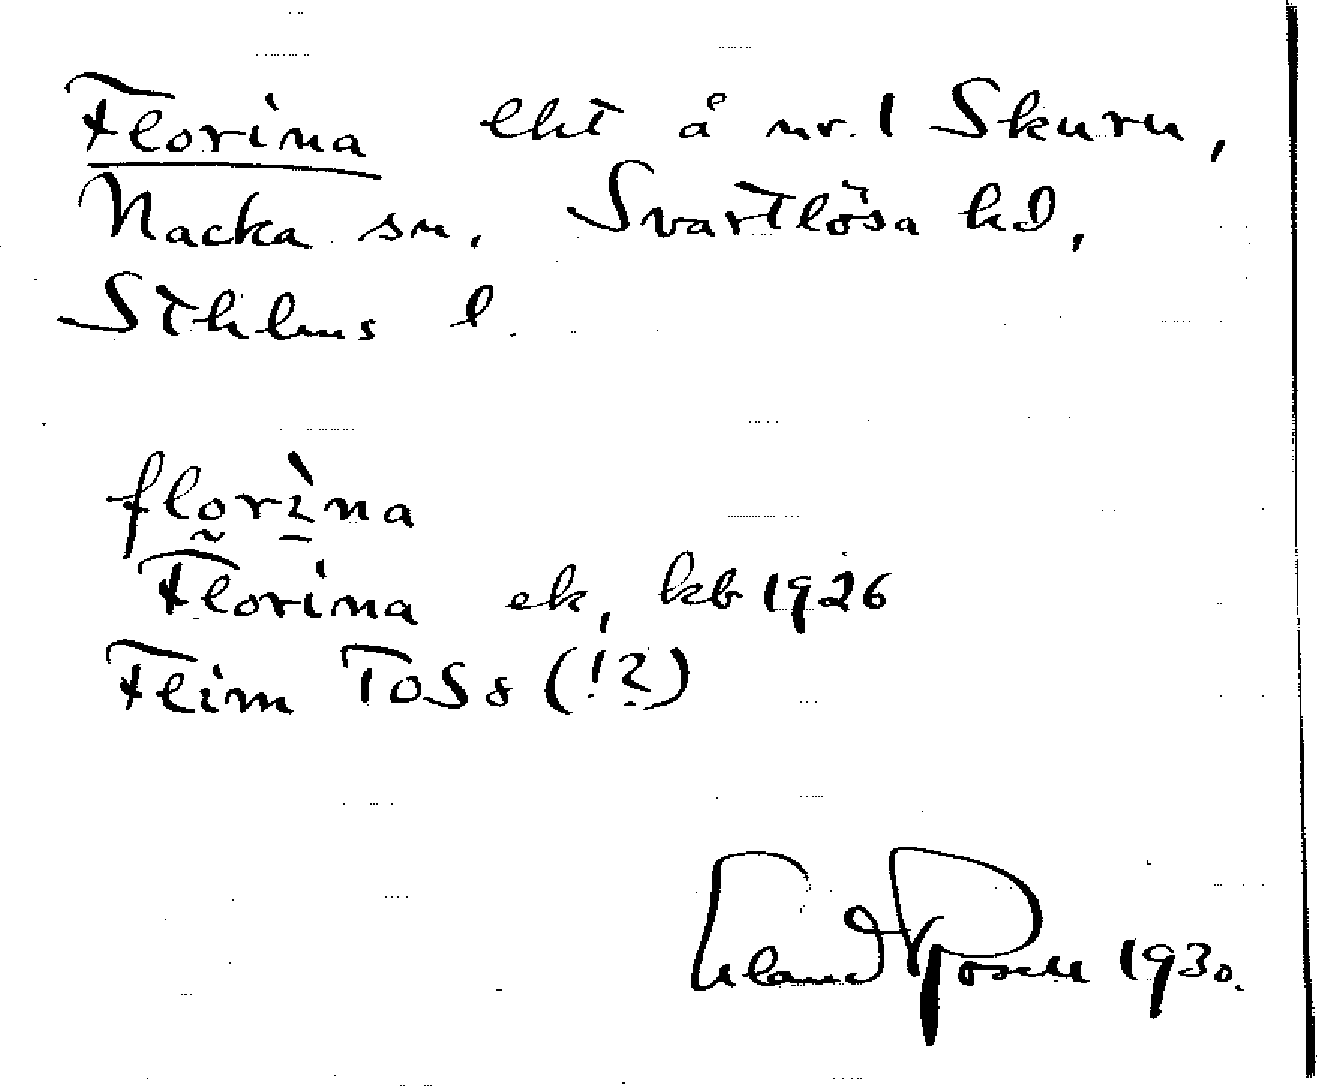 Florina lht å nr. 1 Skuru,
Nacka sn, Svartlösa hd,
Sthlms l.
flo̰rì̱na
Florina ek, kb 1926
Flim ToSs (!?)
Erland Rosell 1930.